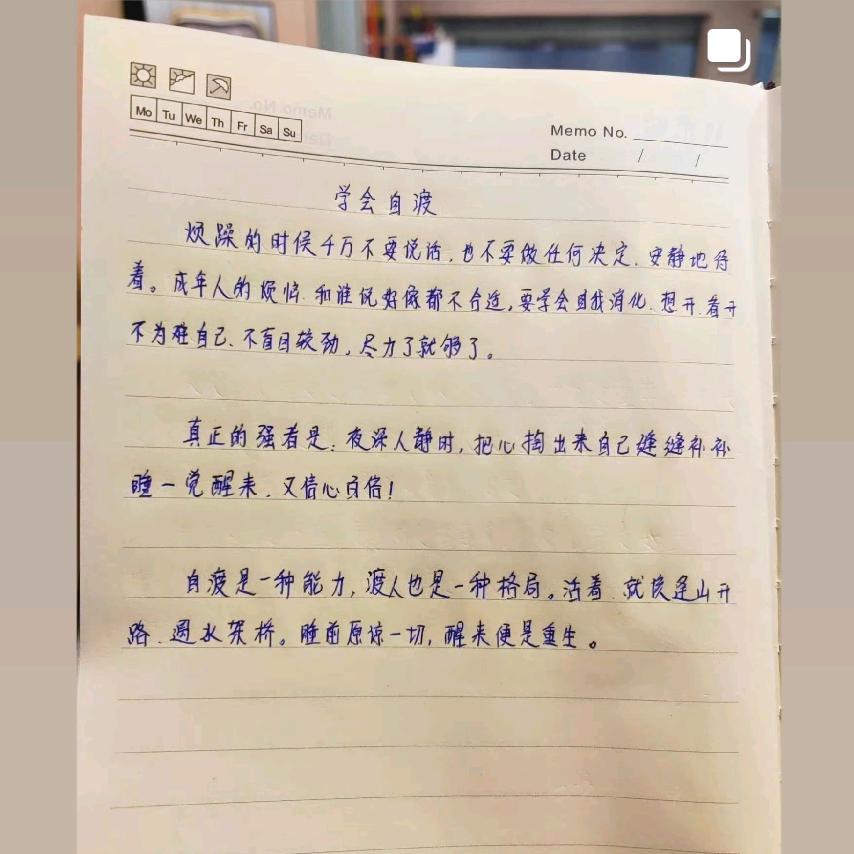 Mo Tu We Th Fr Sa Su
Memo No.
Date / /
学会自渡
烦躁的时候千万不要说话,也不要做任何决定.安静地待
着。成年人的烦恼.和谁说好像都不合适,要学会自我消化.想开.看开
不为难自己、不盲目较劲,尽力了就够了。
真正的强者是:夜深人静时,把心掏出来自己缝缝补补
睡一觉醒来.又信心百倍!
自渡是一种能力,渡人也是一种格局。活着.就该逢山开
路.遇水架桥。睡前原谅一切,醒来便是重生。